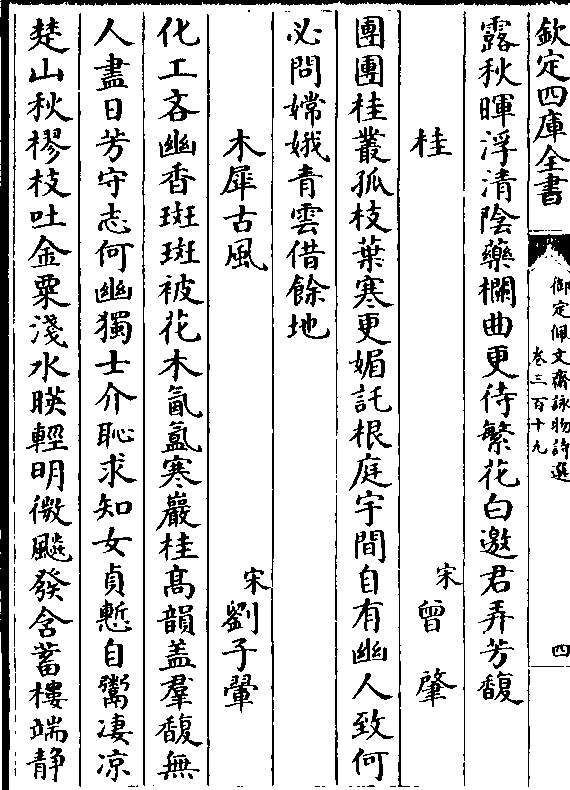 欽定四庫全書
御定佩文齋詠物詩選
卷三百十九
四
露秋暉浮清陰藥欄曲更待繁花白邀君弄芳馥
桂
宋曾肇
團團桂叢孤枝葉寒更媚託根庭宇間自有幽人致何
必問嫦娥青雲借餘地
木犀古風
宋劉子翬
化工吝幽香斑斑被花木氤氳寒巖桂高韻蓋羣馥無
人盡日芳守志何幽獨士介恥求知女貞慙自鬻凄凉
楚山秋樛枝吐金粟淺水暎輕明微飈發含蓄樓端静